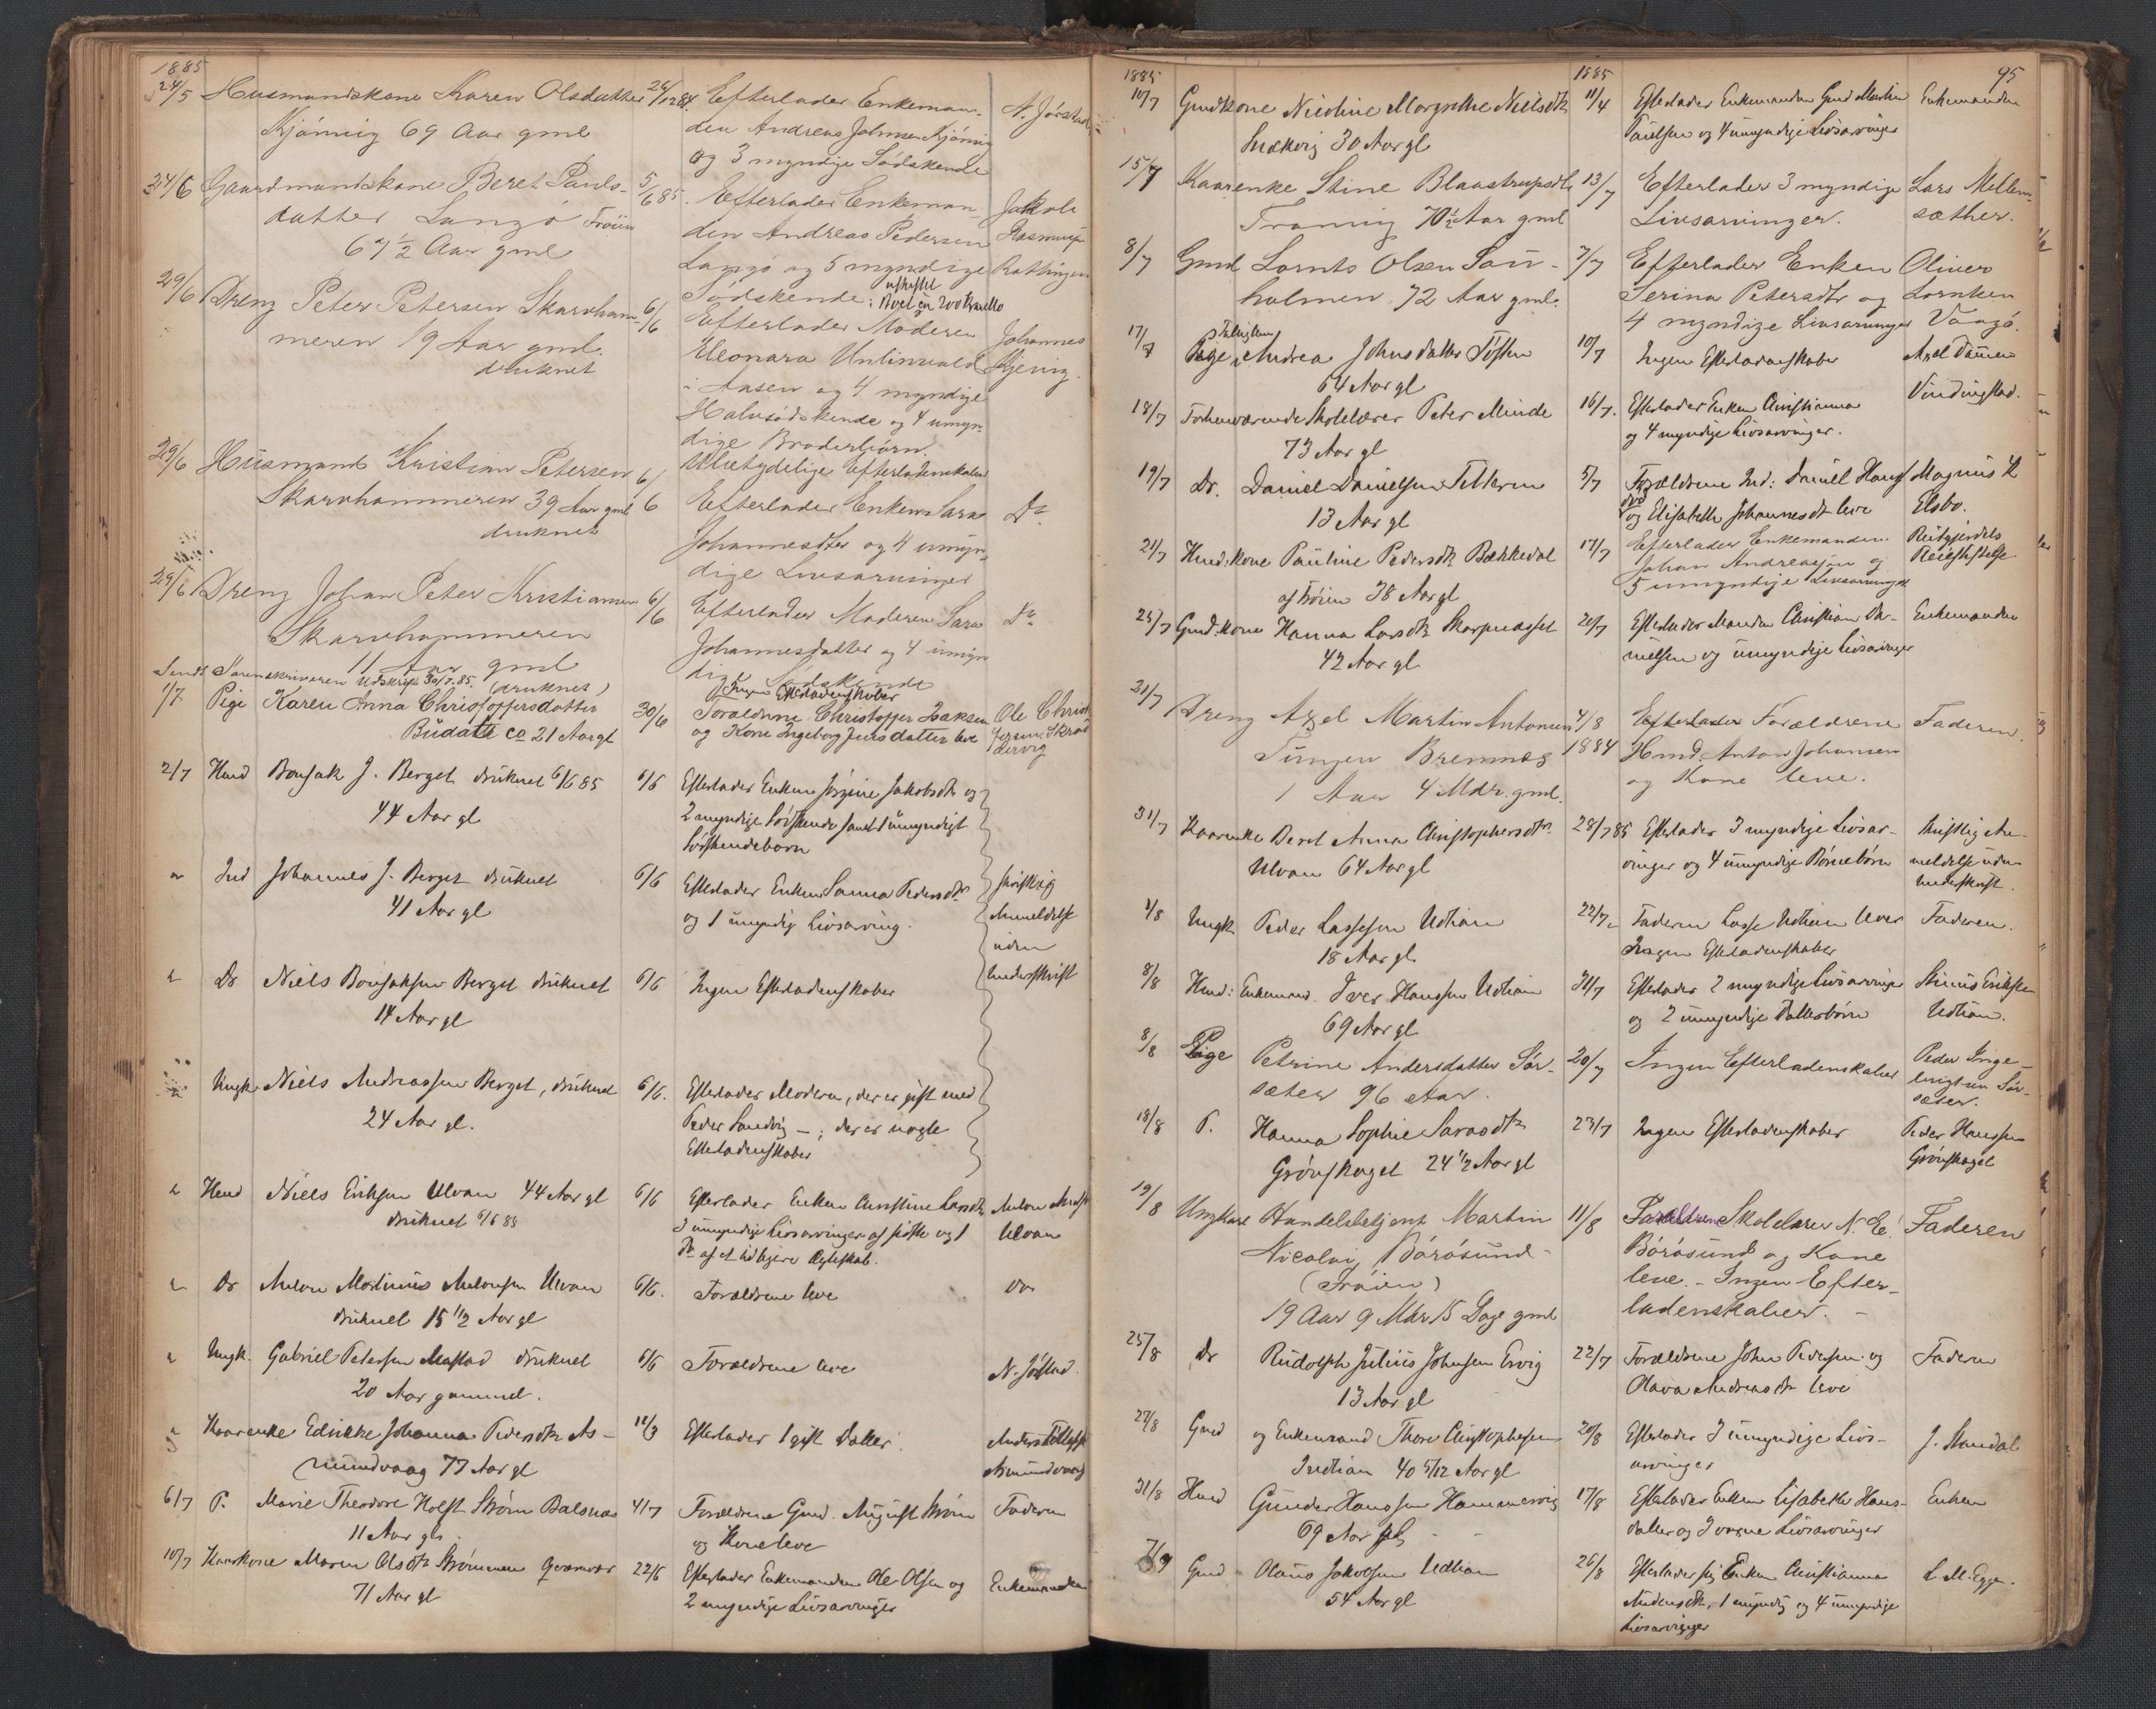 1885
24/5 Husmandskone Karen Olsdatter 24/12 84 Efterlader Enkeman- N. Jørstad
Kjønnig 69 Aar gml den Andreas Johnsen Kjønnig
og 3 myndige Sødskende
24/6 Gaardmandskone Beret Pauls- 5/6 85. Efterlader Enkeman- Jakob
datter Langö Fröien den Andreas Pedersen Rasmussen
67 1/2 Aar gml Langö og 5 myndige
Södskende
29/6 Dreng Peter Petersen Skarvham- 6/6 Efterlader Moderen Johannes
meren 19 Aar gml. Eleonara
druknet i Aasen og 4 myndige
Halvsödskende og 4 umyn-
dige Broderbörn.
Ubetydelige Efterladenskaber
29/6 Husmand Kristian Petersen 6/6 Efterlader Enken Sara Do
Skarvhammeren 39 Aar gml Johannesdter og 4 umyn-
druknet dige Livsarvinger
29/6 Dreng Johan Peter Kristiansen 6/6 Efterlader Moderen Sara Do
Skarvhammeren Johannesdatter og 4 umyn
11 Aar gml dige Sødskende
Sendt Sorenskriveren Udskrift 30/7.85. (druknet) Ingen Efterladenskaber
1/7 Pige Karen Anna Christoffersdatter 30/6 Forældrene Christoffer Isaksen Ole Christ
ca 21 Aar gl og Kone Ingeborg Jensdatter leve
2/7 Hmd Bonsak J. Berget druknet 6/6 85 6/6 Efterlader Enken Jakobsdtr og
44 Aar gl 2 myndige Södskende samt 1 umyndigt
Södskendebarn
" Ind Johannes J. Berget druknet 6/6 Efterlader Enken Sanna Pedersdtr skriftlig
41 Aar gl og 1 umyndig Livsarving. Anmeldelse
uden
" Dr Niels Bonsaksen Berget druknet 6/6 Ingen Efterladenskaber Underskrift
14 Aar gl
" Ungk Niels Andreassen Berget, druknet 6/6. Efterlader Moderen, der er gift med
24 Aar gl. Peder Sandvig – ; der er nogle
Efterladenskaber
" Hmd Niels Eriksen Ulvan 44 Aar gl 6/6 Efterlader Enken Christine Larsdtr Anton
druknet 6/6 85 3 umyndige Livsarvinger af sidste og 1 Ulvan
Do af et tidligere Ægteskab.
" Dr Anton Martinus Antonsen Ulvan 6/6. Forældrene leve Do
druknet 15 1/2 Aar gl
" Ungk. Gabriel Petersen Mastad druknet 6/6 Forældrene leve N. Jøstad
20 Aar gammel.
" Kaarenke Edvikke Johanna Pedersdtr As- 11/3 Efterlader 1 gift Datter. Anders
mundvaag 77 Aar gl Asmundvaag
6/7 P. Marie Theodore Holst Strøm Balsnes 4/7 Forældrene Gmd. August Strøm Faderen
11 Aar gl. og Kone leve
10/7 Kaarkone Maren Olsdtr Strømmen Qvænvær 22/6 Efterlader Enkemanden Ole Olsen og Enkemanden
71 Aar gl 2 myndige Livsarvinger
1885 1885 95
10/7 Gmdkone Nicoline Margrethe Nielsdtr 11/4 Efterlader Enkemanden Gmd Martin Enkemanden
30 Aar gl Paulsen og 4 umyndige Livsarvinger
15/7 Kaarenke Stine Blaastrupsdtr 13/7 Efterlader 3 myndige Lars Mellem-
70 1/2 Aar gml Livsarvinger. sæther.
8/7 Gmd Lornts Olsen Sau- 3/7 Efterlader Enken Oliver
holmen 72 Aar gml. Serina Petersdtr og Lorntsen
4 myndige Livsarvinger Vaagø.
17/7 Fattiglem
Pige Andrea Johnsdatter Toften 10/7 Ingen Efterladenskaber Axel
64 Aar gl
18/7 Forhenværende Skolelærer Peter Minde 16/7. Efterlader Enken Christianna
73 Aar gl og 4 myndige Livsarvinger.
19/7 Dr. Daniel Danielsen Titteren 5/7 Forældrene Ind: Daniel Hans Magnus H
13 Aar gl og Elisabeth Johannesdtr leve Elsbo.
21/7 Hmd:kone Pauline Pedersdtr Bækkedal 17/7 Efterlader Enkemanden
af Fröien 38 Aar gl Johan Andreassen og
5 umyndige Livsarvinger
25/7 Gmd:kone Hanna Larsdtr Skarpnæsset 20/7 Efterlader Manden Christian Da- Enkemanden
42 Aar gl nielsen og umyndige Livsarvinger
31/7 Dreng Axel Martin Antonsen 4/8 1884 Efterlader Forældrene Faderen.
Bremnes Hmd Anton Johansen
1 Aar 4 Mdr. gml. og Kone leve.
31/7 Kaarenke Beret Anna Christophersdtr. 28/7 85 Efterlader 3 myndige Livsar- Skriftlig An-
Ulvan 64 Aar gl vinger og 4 umyndige Børnebørn meldelse uden
Underskrift.
4/8 Ungk Peder Lassesen Udtian 22/7 Faderen Lasse Udtian lever Faderen.
18 Aar gl. Ingen Efterladenskaber
8/8 Hmd: Enkemand. Iver Hanssen Udtian 31/7 Efterlader 2 myndige Livsarvinger Eriksen
69 Aar gl og 2 umyndige Datterbørn Udtian.
8/8 Pige Petrine Andersdatter Sör- 20/7 Ingen Efterladenskaber Peder Inge-
sæter 96 Aar. brigtsen Sör-
sæter.
18/8 P. Hanna Sophie Sarasdtr 23/7 Ingen Efterladenskaber Peder Hanssen
Grønskaget 24 1/2 Aar gl Grønskaget
19/8 Ungkarl Handelsbetjent Martin 11/8 Forældrene Skolelærer N. E. Faderen
Nicolai BöröSund Börösund og Kone
(Fröien) leve. – Ingen Efter-
19 Aar 9 Mdr 15 Dage gml ladenskaber. –
25/8 Dr Rudolph Julius Johnsen Ervig 22/7 Forældrene John Pedersen og Faderen
13 Aar gl Olava Andreasdtr leve
27/8 Gmd og Enkemand Thore Christophersen 20/8 Efterlader 3 umyndige Livs- J. Standal
40 5/12 Aar gl arvinger
31/8 Hmd Gunder Hanssen Hammervig 17/8 Efterlader Enken Elisabeth Hans- Enken
69 Aar gl datter og 3 voxne Livsarvinger
7/9 Gmd Olaus Jakobsen Udtian 26/8 Efterlader sig Enken Christianna L. M. Egge.
54 Aar gl Andersdtr, 1 myndig og 4 umyndige
Livsarvinger